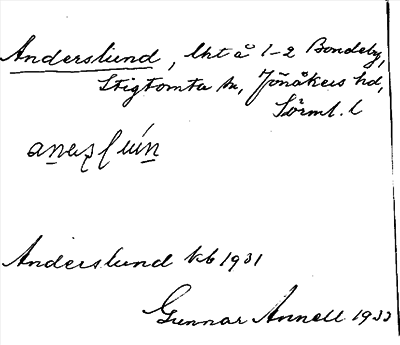 Anderslund, lht å 1-2 Bondeby,
Stigtomta sn, Jönåkers hd,
Sörml. l
Anderslund kb 1931
Gunnar Annell 1933